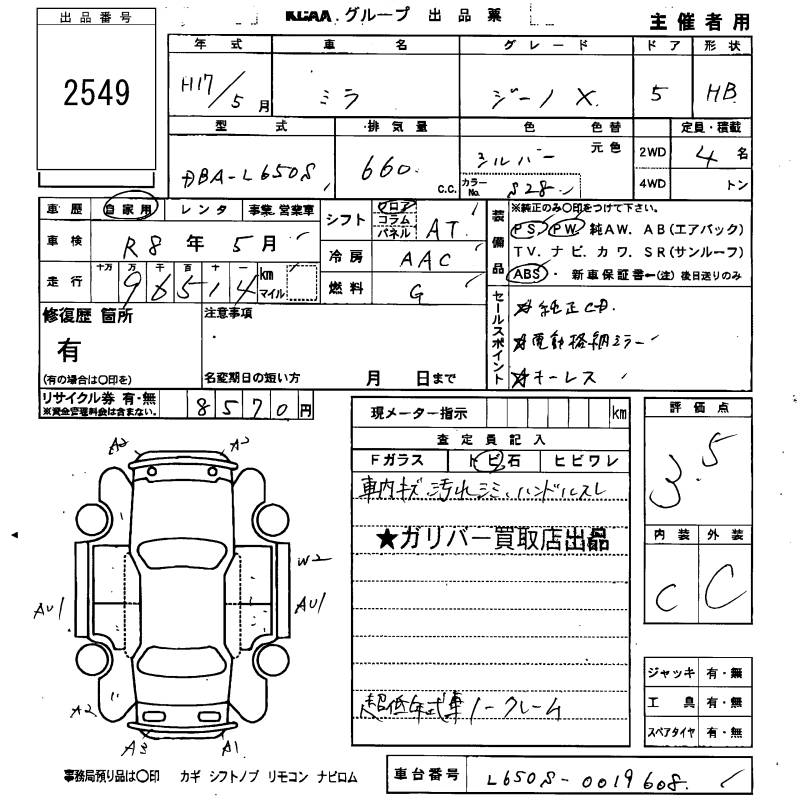 出品番号
KCAA グループ 出品票
主催者用
2549
年式 車名 グレード ドア 形状
H17/5月 ミラ ジーノ X. 5 HB
型式 排気量 色 色替 定員・積載
DBA-L650S 660. c.c. シルバー 元色 2WD 4名
カラーNo. S28 4WD トン
車歴 自家用 レンタ 事業.営業車
シフト フロア コラム パネル AT
車検 R8年5月
冷房 AAC
走行 十万 万 千 百 十 一 96514 km マイル
燃料 G
装備品
※純正のみ〇印をつけて下さい。
PS. PW. 純AW. AB(エアバック)
TV. ナビ. カワ. SR(サンルーフ)
ABS ・ 新車保証書←(注)後日送りのみ
セールスポイント
☆純正CD.
☆電動格納ミラー
☆キーレス
修復歴 箇所
有
(有の場合は〇印を)
注意事項
名変期日の短い方 月 日まで
リサイクル券 有・無 8570円
※資金管理料金は含まない。
現メーター指示 km
査定員記入
Fガラス トビ石 ヒビワレ
車内キズ.汚れシミ.ハンドルスレ
★ガリバー買取店出品
超低年式車ノークレーム
評価点
3.5
内装 外装
C C
ジャッキ 有・無
工具 有・無
スペアタイヤ 有・無
A2 A2
W2
AU1 AU1
A2
A3 A1
事務局預り品は〇印 カギ シフトノブ リモコン ナビロム
車台番号 L650S-0019608.